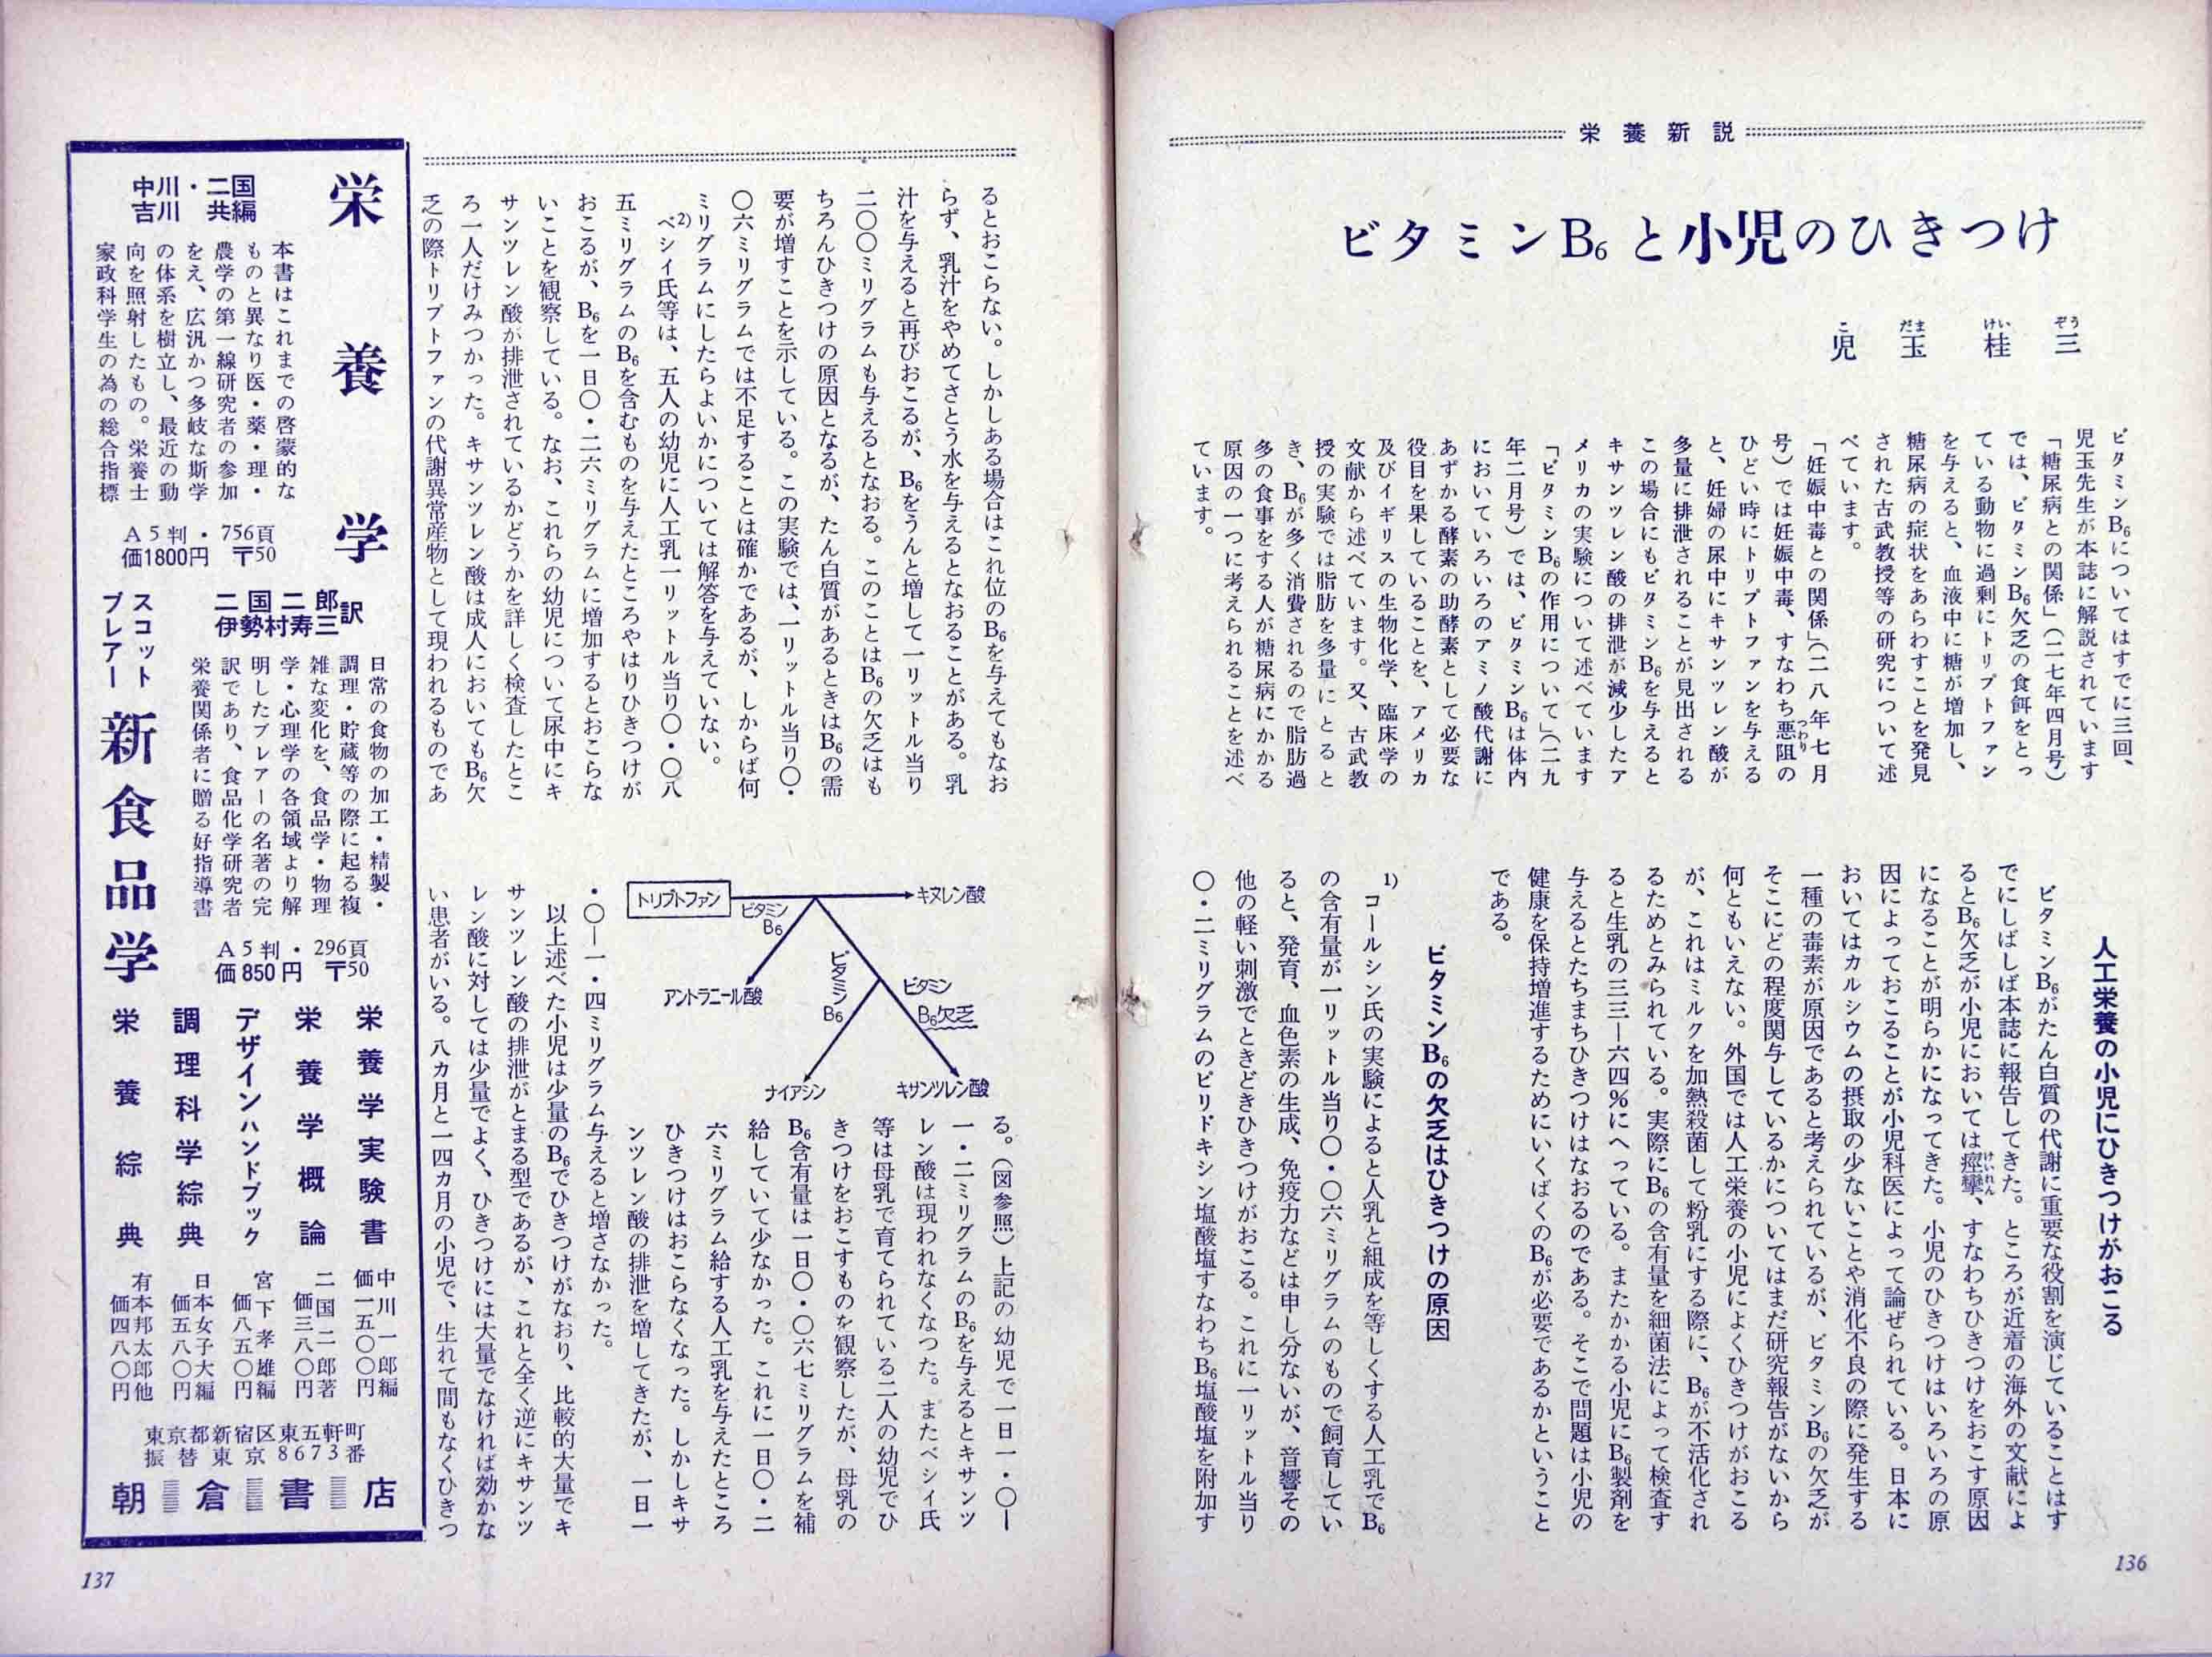 栄養新説
ビタミンB₆と小児のひきつけ
児玉桂三
こだまけいぞう
ビタミンB₆についてはすでに三回、
児玉先生が本誌に解説されています
「糖尿病との関係」(二七年四月号)
では、ビタミンB₆欠乏の食餌をとっ
ている動物に過剰にトリプトファン
を与えると、血液中に糖が増加し、
糖尿病の症状をあらわすことを発見
された古武教授等の研究について述
べています。
「妊娠中毒との関係」(二八年七月
号)では妊娠中毒、すなわち悪阻の
つわり
ひどい時にトリプトファンを与える
と、妊婦の尿中にキサンツレン酸が
多量に排泄されることが見出される
この場合にもビタミンB₆を与えると
キサンツレン酸の排泄が減少したア
メリカの実験について述べています
「ビタミンB₆の作用について」(二九
年二月号)では、ビタミンB₆は体内
においていろいろのアミノ酸代謝に
あずかる酵素の助酵素として必要な
役目を果していることを、アメリカ
及びイギリスの生物化学、臨床学の
文献から述べています。又、古武教
授の実験では脂肪を多量にとると
き、B₆が多く消費されるので脂肪過
多の食事をする人が糖尿病にかかる
原因の一つに考えられることを述べ
ています。
人工栄養の小児にひきつけがおこる
ビタミンB₆がたん白質の代謝に重要な役割を演じていることはす
でにしばしば本誌に報告してきた。ところが近着の海外の文献によ
るとB₆欠乏が小児においては痙攣、すなわちひきつけをおこす原因
けいれん
になることが明らかになってきた。小児のひきつけはいろいろの原
因によっておこることが小児科医によって論ぜられている。日本に
おいてはカルシウムの摂取の少ないことや消化不良の際に発生する
一種の毒素が原因であると考えられているが、ビタミンB₆の欠乏が
そこにどの程度関与しているかについてはまだ研究報告がないから
何ともいえない。外国では人工栄養の小児によくひきつけがおこる
が、これはミルクを加熱殺菌して粉乳にする際に、B₆が不活化され
るためとみられている。実際にB₆の含有量を細菌法によって検査す
ると生乳の三三—六四%にへっている。またかかる小児にB₆製剤を
与えるとたちまちひきつけはなおるのである。そこで問題は小児の
健康を保持増進するためにいくばくのB₆が必要であるかということ
である。
ビタミンB₆の欠乏はひきつけの原因
1)コールシン氏の実験によると人乳と組成を等しくする人工乳でB₆
の含有量が一リットル当り〇・〇六ミリグラムのもので飼育してい
ると、発育、血色素の生成、免疫力などは申し分ないが、音響その
他の軽い刺激でときどきひきつけがおこる。これに一リットル当り
〇・二ミリグラムのピリドキシン塩酸塩すなわちB₆塩酸塩を附加す
136
るとおこらない。しかしある場合はこれ位のB₆を与えてもなお
らず、乳汁をやめてさとう水を与えるとなおることがある。乳
汁を与えると再びおこるが、B₆をうんと増して一リットル当り
二〇〇ミリグラムも与えるとなおる。このことはB₆の欠乏はも
ちろんひきつけの原因となるが、たん白質があるときはB₆の需
要が増すことを示している。この実験では、一リットル当り〇・
〇六ミリグラムでは不足することは確かであるが、しからば何
ミリグラムにしたらよいかについては解答を与えていない。
2)ベシイ氏等は、五人の幼児に人工乳一リットル当り〇・〇八
五ミリグラムのB₆を含むものを与えたところやはりひきつけが
おこるが、B₆を一日〇・二六ミリグラムに増加するとおこらな
いことを観察している。なお、これらの幼児について尿中にキ
サンツレン酸が排泄されているかどうかを詳しく検査したとこ
ろ一人だけみつかった。キサンツレン酸は成人においてもB₆欠
乏の際トリプトファンの代謝異常産物として現われるものであ
トリプトファン
キヌレン酸
ビタミン
B₆
アントラニール酸
ビタミン
B₆
ビタミン
B₆欠乏
ナイアシン
キサンツレン酸
る。(図参照)上記の幼児で一日一・〇—
一・二ミリグラムのB₆を与えるとキサンツ
レン酸は現われなくなつた。またベシイ氏
等は母乳で育てられている二人の幼児でひ
きつけをおこすものを観察したが、母乳の
B₆含有量は一日〇・〇六七ミリグラムを補
給していて少なかった。これに一日〇・二
六ミリグラム給する人工乳を与えたところ
ひきつけはおこらなくなった。しかしキサ
ンツレン酸の排泄を増してきたが、一日一
・〇—一・四ミリグラム与えると増さなかった。
以上述べた小児は少量のB₆でひきつけがなおり、比較的大量でキ
サンツレン酸の排泄がとまる型であるが、これと全く逆にキサンツ
レン酸に対しては少量でよく、ひきつけには大量でなければ効かな
い患者がいる。八カ月と一四カ月の小児で、生れて間もなくひきつ
栄養学
中川・二国
吉川 共編
本書はこれまでの啓蒙的な
ものと異なり医・薬・理・
農学の第一線研究者の参加
をえ、広汎かつ多岐な斯学
の体系を樹立し、最近の動
向を照射したもの。栄養士
家政科学生の為の総合指標
A5判・756頁
価1800円 〒50
スコット
ブレアー 新食品学
二国二郎
伊勢村寿三 訳
日常の食物の加工・精製・
調理・貯蔵等の際に起る複
雑な変化を、食品学・物理
学・心理学の各領域より解
明したブレアーの名著の完
訳であり、食品化学研究者
栄養関係者に贈る好指導書
A5判・296頁
価850円 〒50
栄養学実験書 中川一郎編 価一五〇〇円
栄養学概論 二国二郎著 価三八〇円
デザインハンドブック 宮下孝雄編 価八五〇円
調理科学綜典 日本女子大編 価五八〇円
栄養綜典 有本邦太郎他 価四八〇円
東京都新宿区東五軒町
振替東京8673番
朝倉書店
137